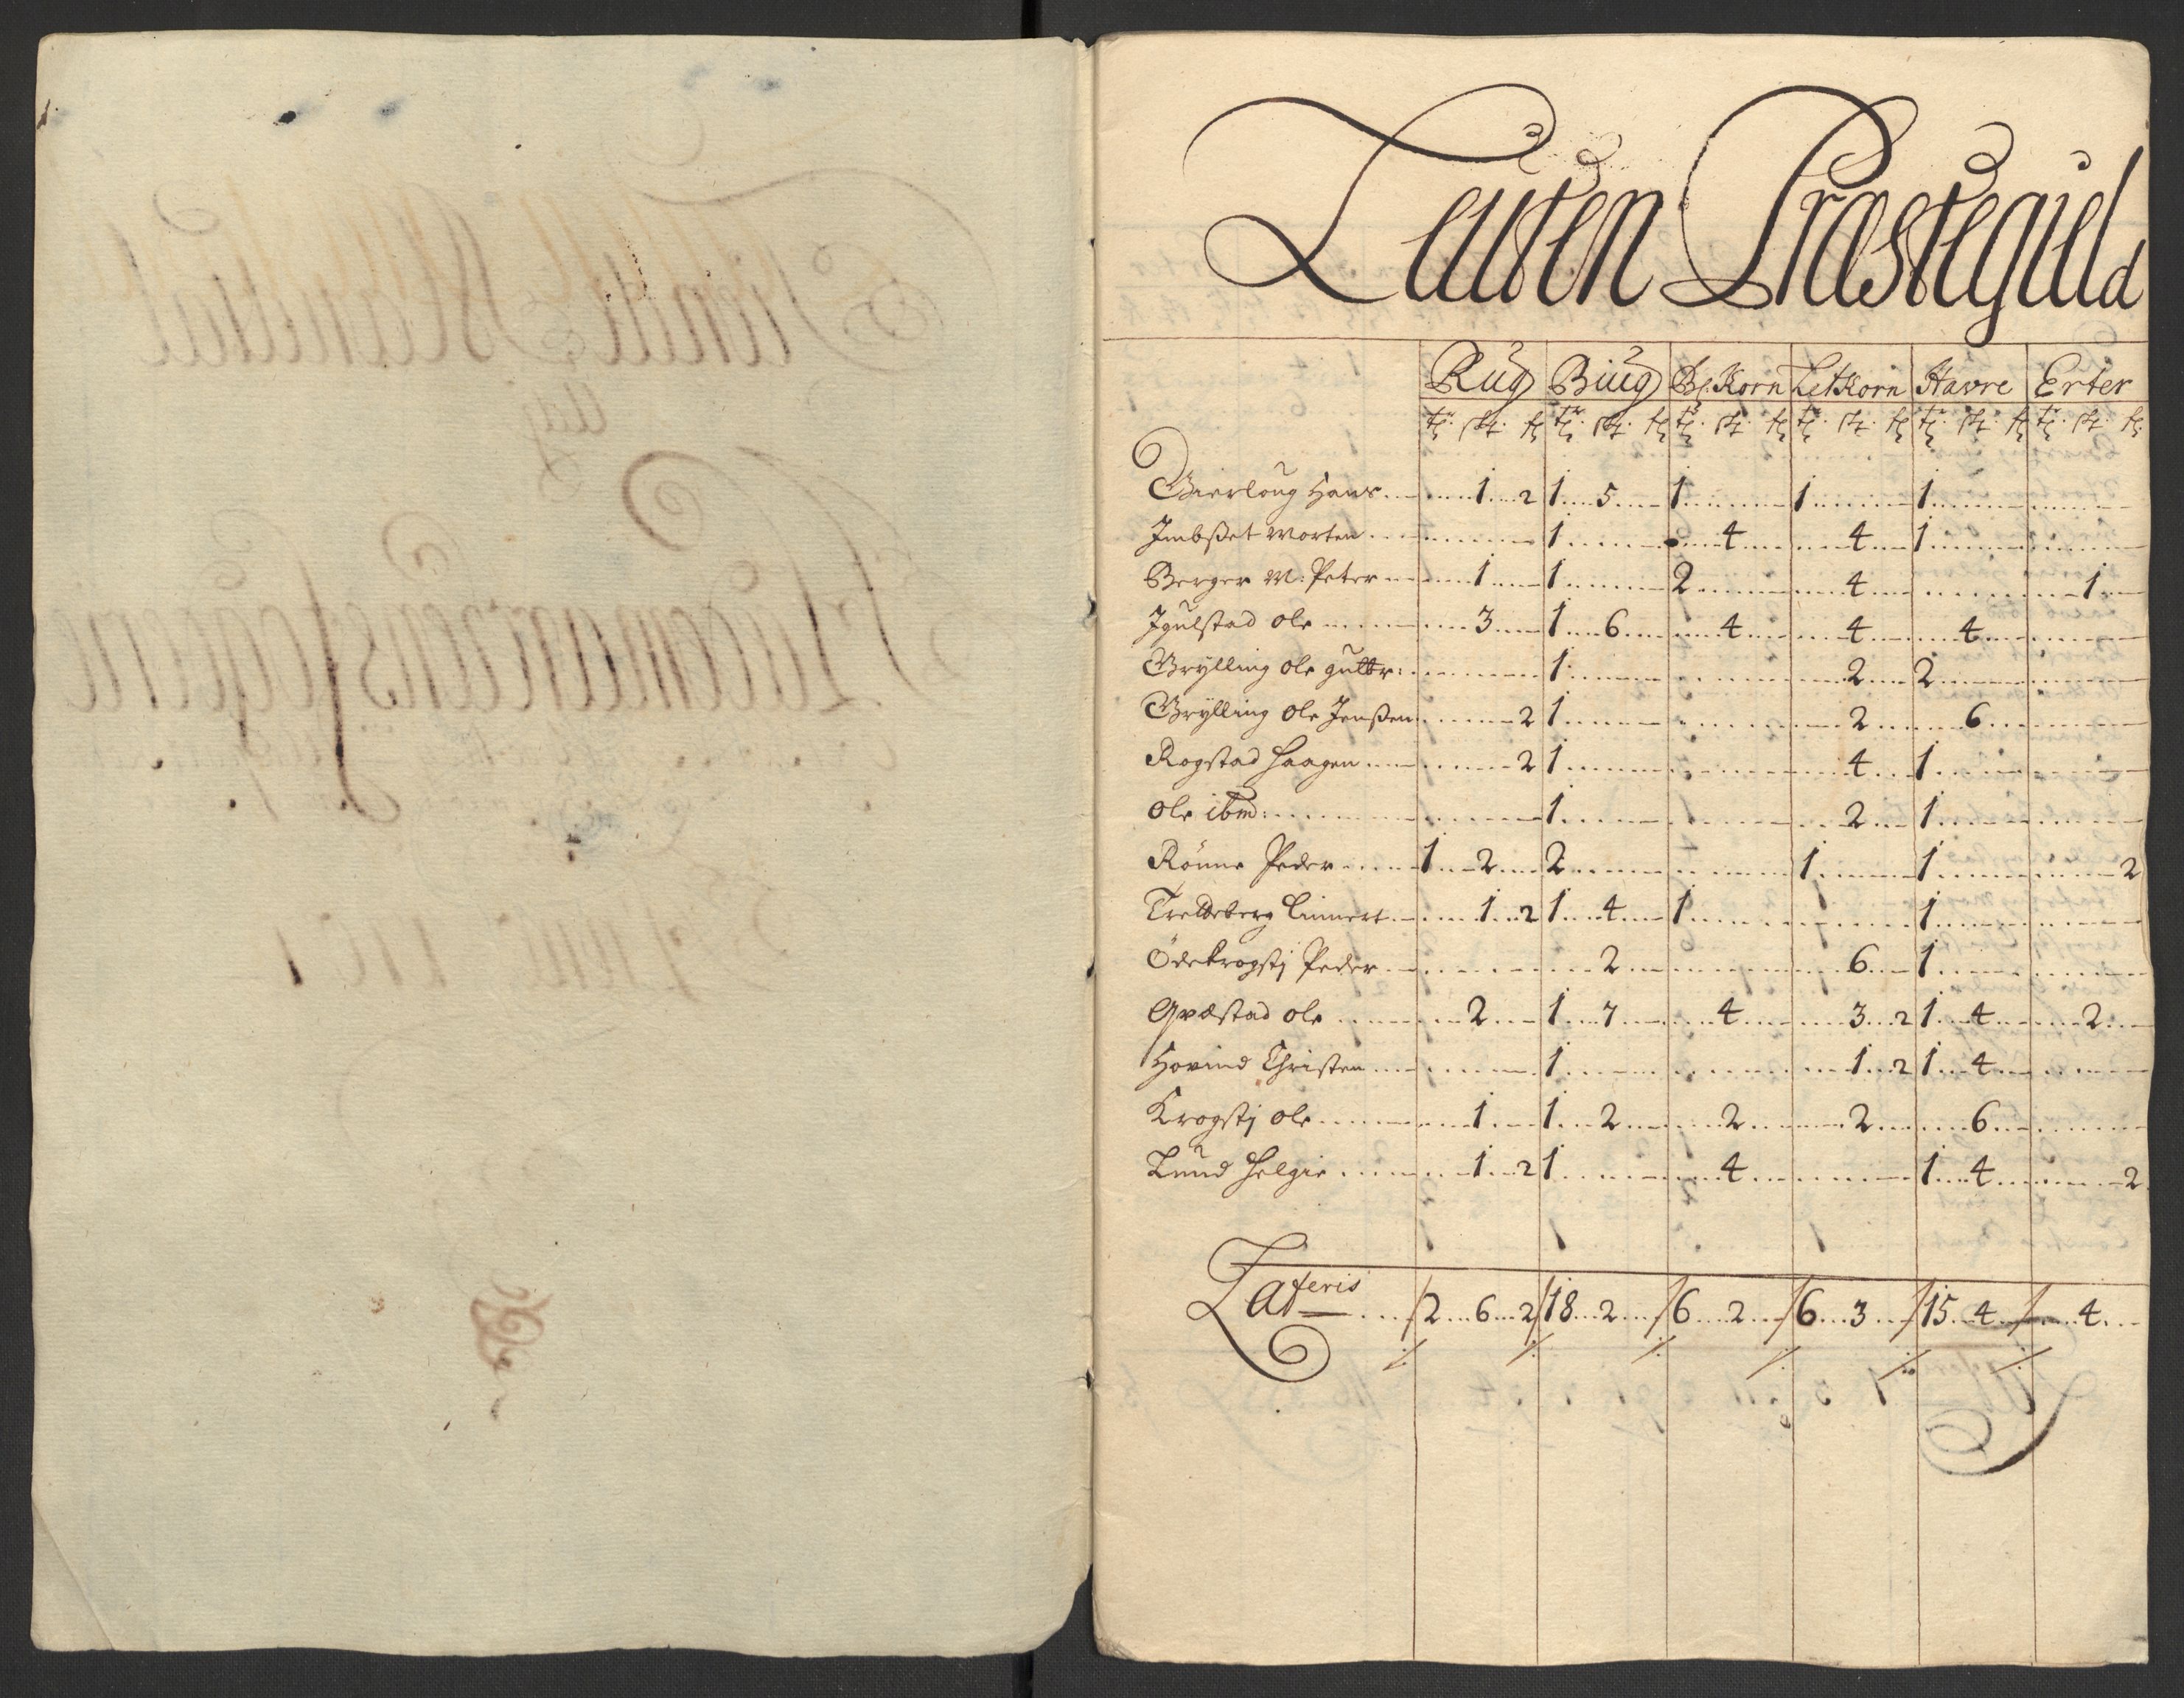 Leuten Præstegield
Rug Biug Bl. Korn Letkorn Havre Erter
tr. sk. f. tr. sk. f. tr. sk. f. tr. sk. f. tr. sk. f. tr. sk. f.
Gierloug Hans ... 1 .. 2 | 1 ... 5 ... | 1 ... | 1 ... | 1 ...
Imbset Morten ... | 1 ... | 4 ... | 4 ... | 1 ...
Berger M: Peter ... 1 ... | 1 ... | 2 ... | 4 ... | ... | 1 ..
Igulstad Ole ... 3 ... | 1 ... 6 ... | 4 ... | 4 ... | 4 ...
Grylling Ole gulbr: ... | 1 ... | ... | 2 ... | 2 ...
Grylling Ole Jenßen ... 2 | 1 ... | ... | 2 ... | 6 ...
Rogstad Haagen ... 2 | 1 ... | ... | 4 ... | 1 ...
Ole ibm: ... | 1 ... | ... | 2 ... | 1 ...
Rönne Peder ... 1 .. 2 ... | 2 ... | ... | 1 ... | 1 ... | 2
Tretteberg Linnert ... 1 .. 2 | 1 ... 4 ... | 1 ... | ... | 1 ...
Ödekrogstj Peder ... | 2 ... | ... | 6 ... | 1 ...
Græstad Ole ... 2 ... | 1 ... 7 ... | 4 ... | 3 .. 2 | 1 ... 4 ... | 2 ...
Hovind Christen ... | 1 ... | ... | 1 .. 2 | 1 ... 4 ...
Krogstj Ole ... 1 ... | 1 ... 2 ... | 2 ... | 2 ... | 6 ...
Lund Helgie ... 1 .. 2 | 1 ... | 4 ... | ... | 1 ... 4 ... | 2
Lateris ... / 2 ... 6 ... 2 / 18 ... 2 ... / 6 ... 2 ... / 6 ... 3 ... / 15 .. 4 ... / ... 4 ...